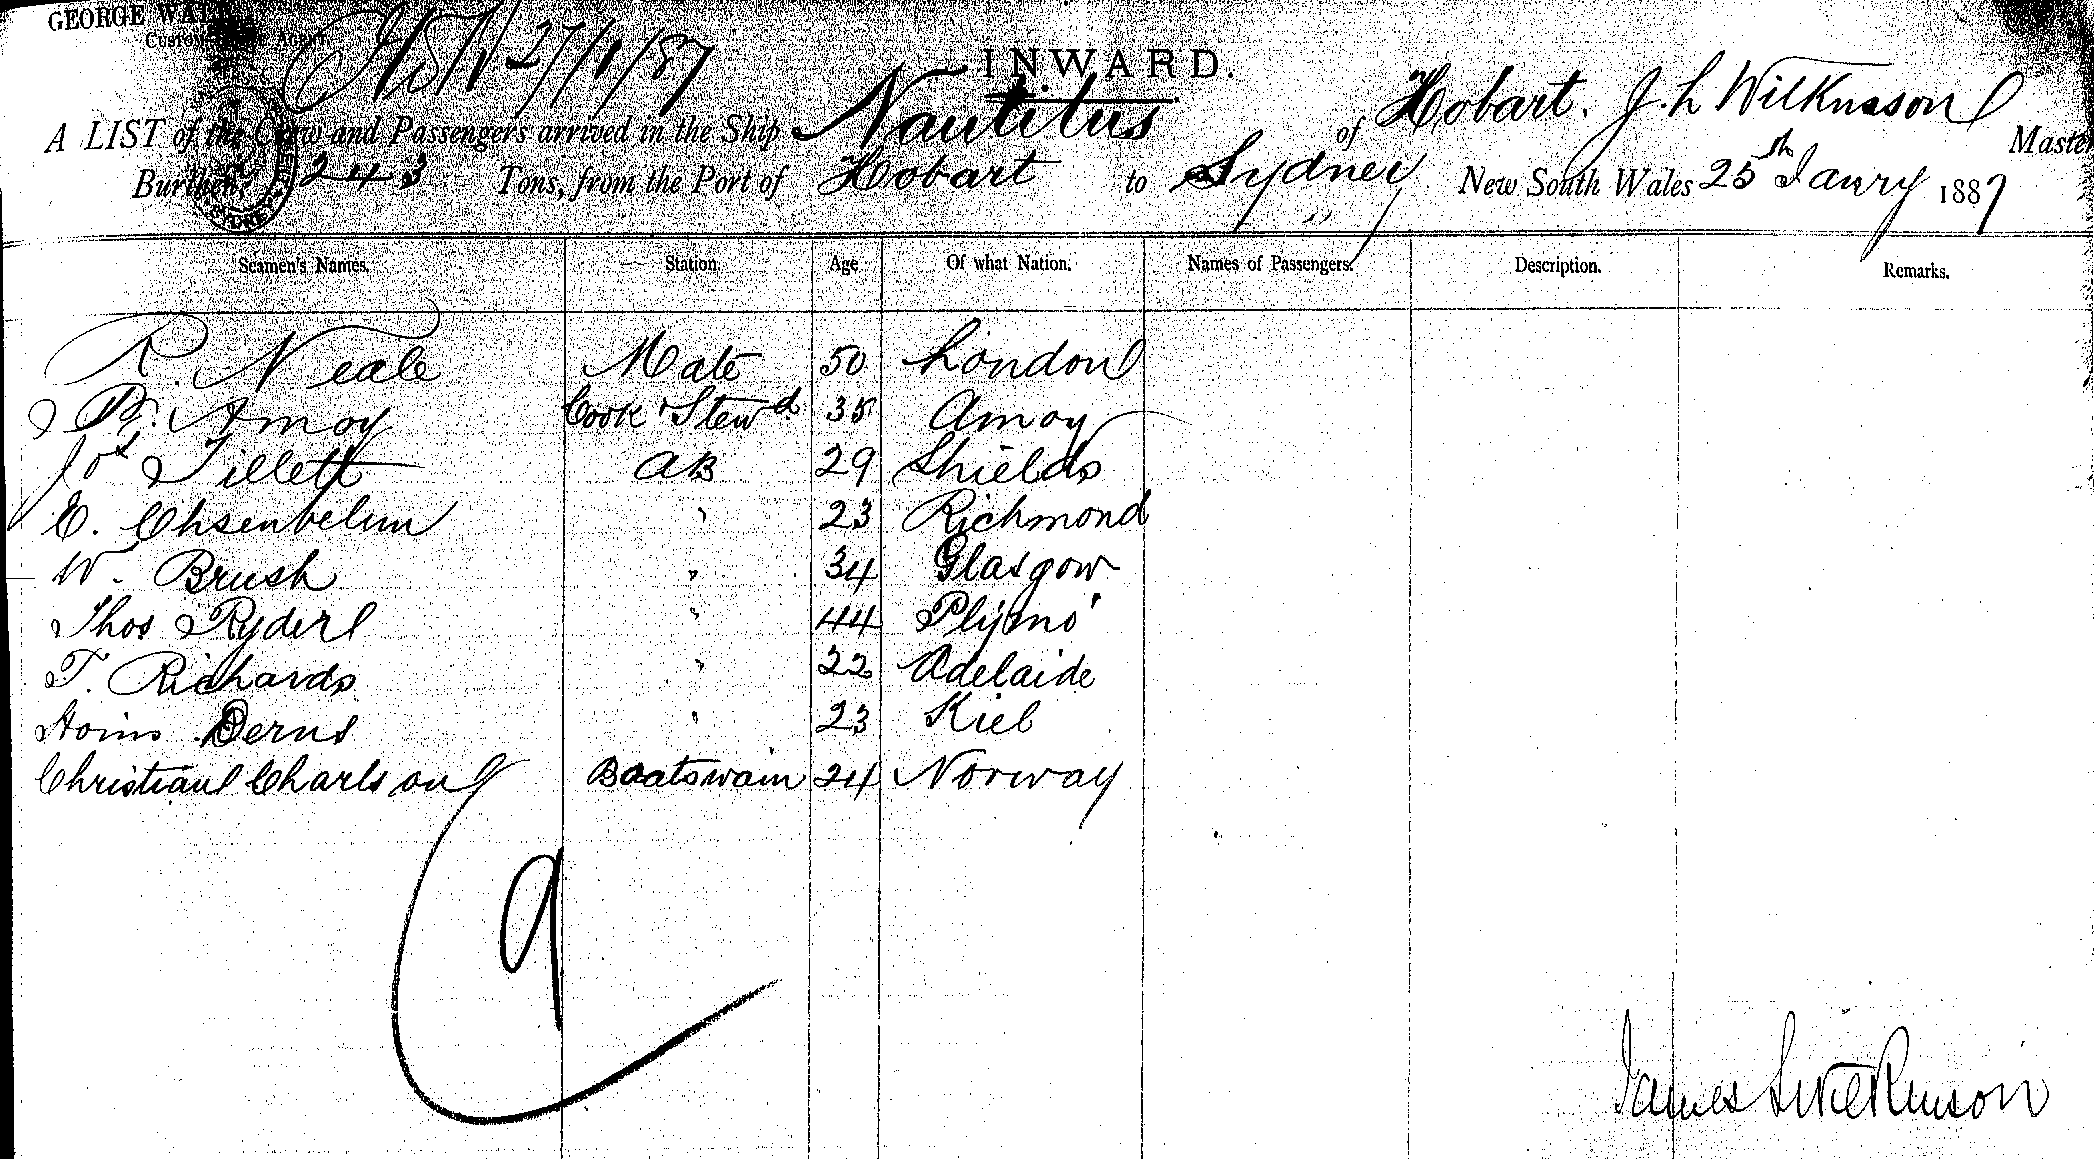 GEORGE WALL
Customs Agent
27/1/87
INWARD.
A LIST of the Crew and Passengers arrived in the Ship Nautilus of Hobart. J. L Wilkinson Master
Burthen 243 Tons, from the Port of Hobart to Sydney New South Wales 25th Janry 1887
Seamen's Names. Station Age Of what Nation. Names of Passengers. Description. Remarks.
R. Neale Mate 50 London
B. Amoy Cook Stewd 35 Amoy
Jos Tillett AB 29 Shields
E. " 23 Richmond
W. Brush " 34 Glasgow
Thos Ryder " 44 Plymo'
T. Richards " 22 Adelaide
Derns " 23 Kiel
Christian Charlson Boatswain 24 Norway
9
James L Wilkinson